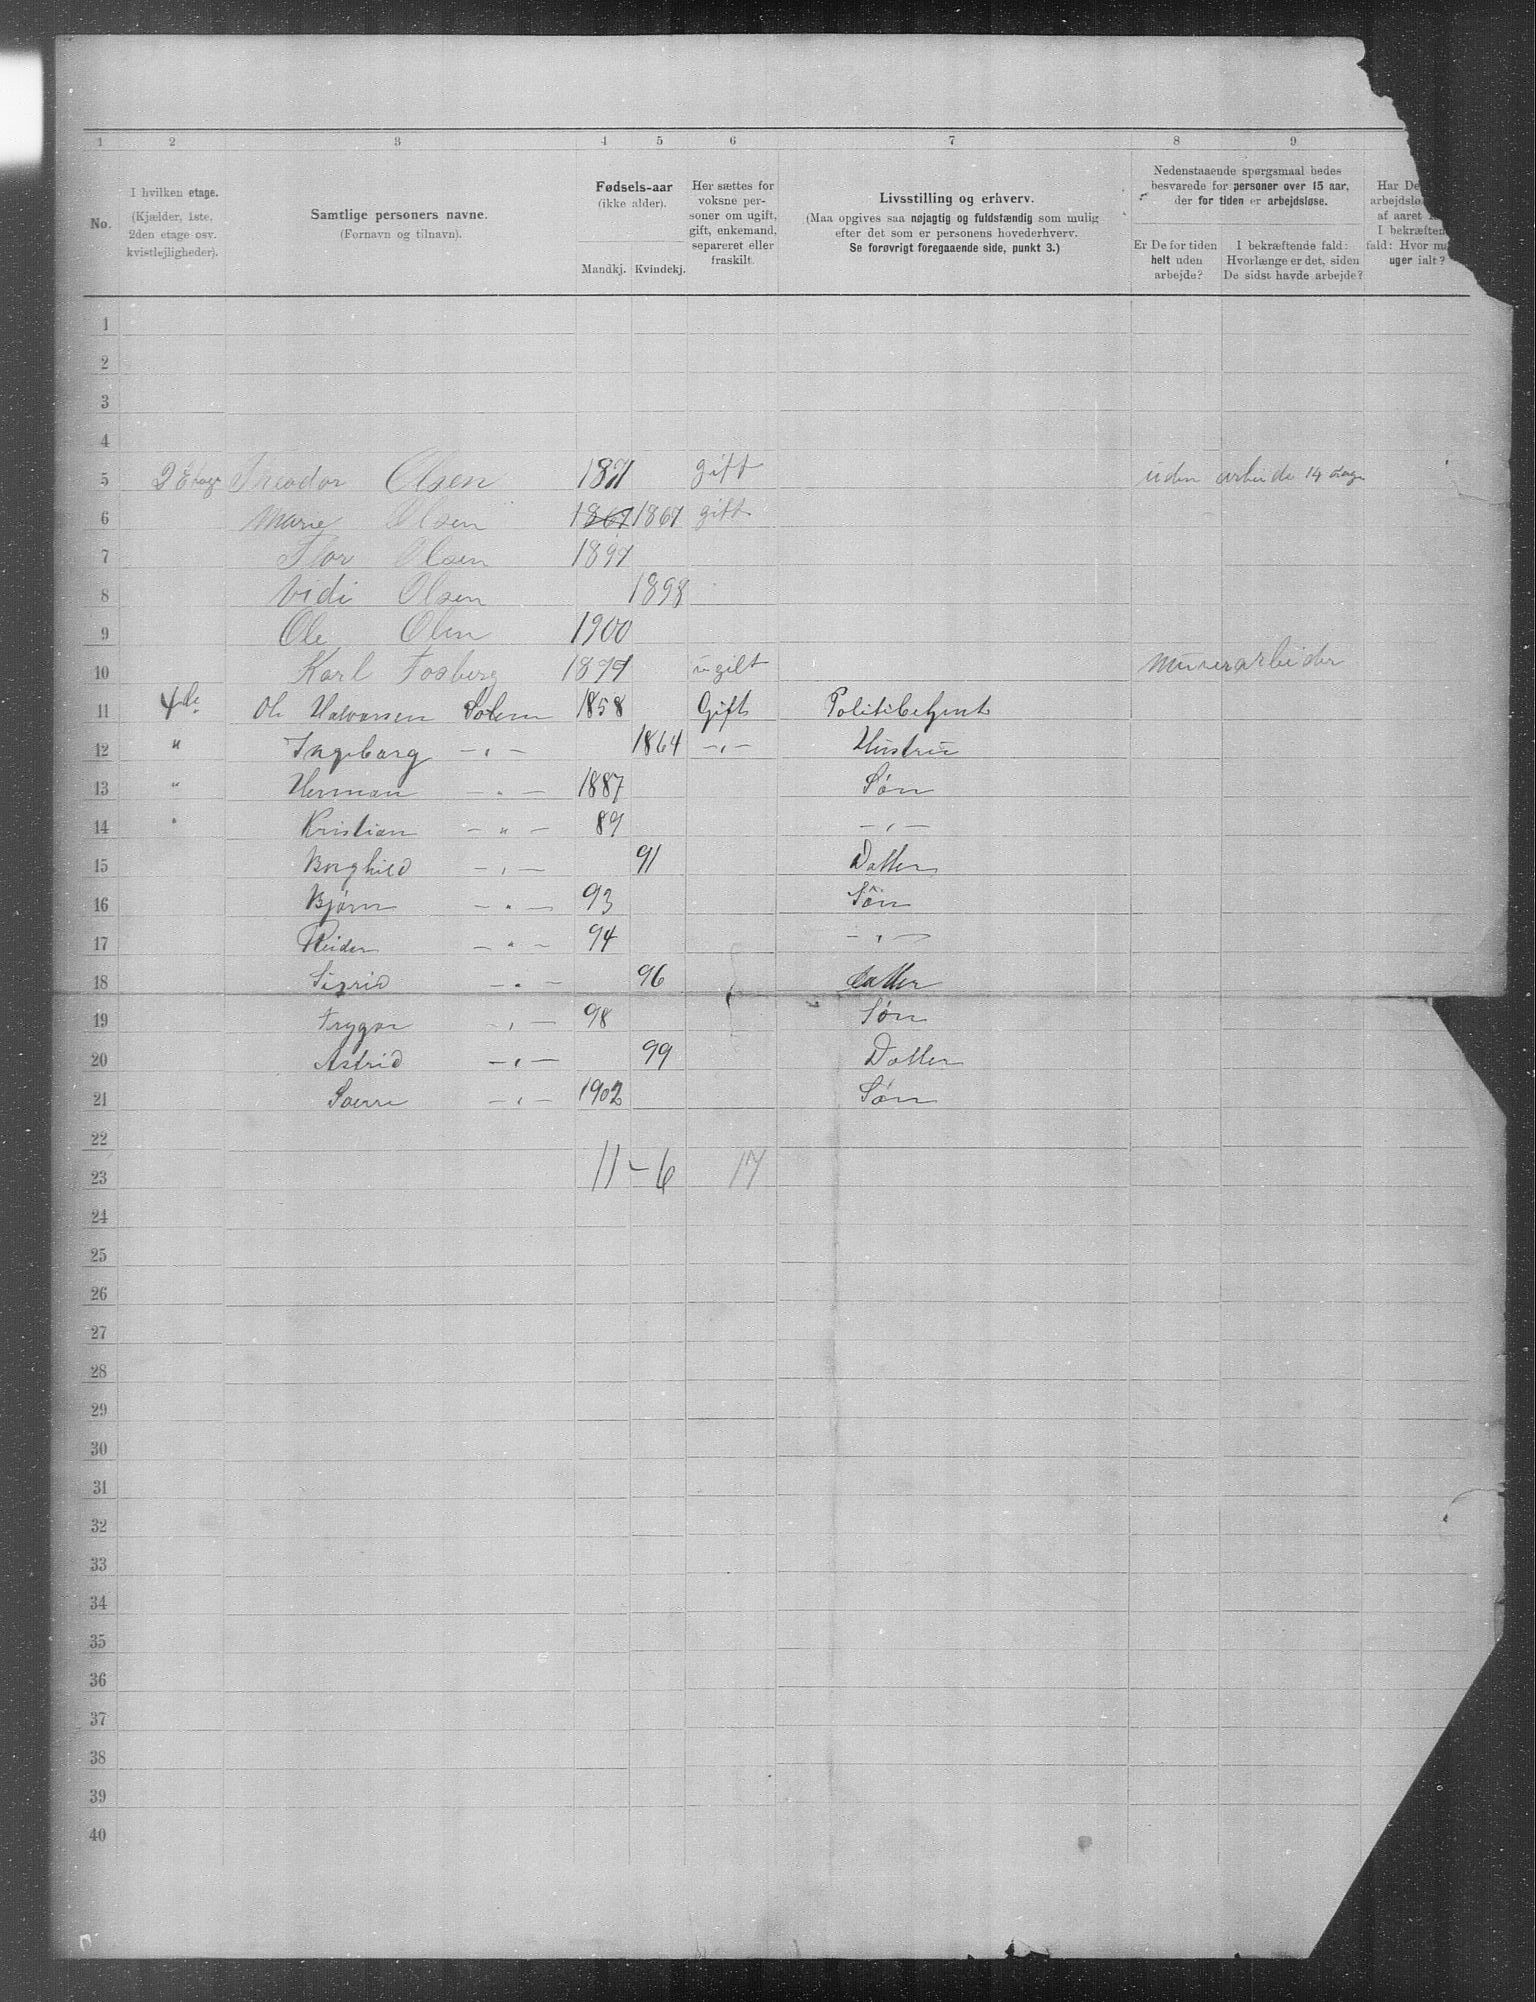 1 2 3 4 5 6 7 8 9
No.
I hvilken etage.
(Kjælder, 1ste,
2den etage osv.
kvistlejligheder).
Samtlige personers navne.
(Fornavn og tilnavn).
Fødsels-aar
(ikke alder).
Mandkj. Kvindekj.
Her sættes for
voksne per-
soner om ugift,
gift, enkemand,
separeret eller
fraskilt.
Livsstilling og erhverv.
(Maa opgives saa nøjagtig og fuldstændig som mulig
efter det som er personens hovederhverv.
Se forøvrigt foregaaende side, punkt 3.)
Nedenstaaende spørgsmaal bedes
besvarede for personer over 15 aar,
der for tiden er arbejdsløse.
Er De for tiden
helt uden
arbejde?
I bekræftende fald:
Hvorlænge er det, siden
De sidst havde arbejde?
Har De
arbejdslø
af aaret
I bekræften
fald: Hvor ma
uger ialt?
1
2
3
4
5 2 Etage Theodor Olsen 1871 gift uden arbeide 14 dage
6 Marie Olsen 1867 1867 gift
7 Thor Olsen 1897
8 Vidi Olsen 1898
9 Ole Olsen 1900
10 Karl Fosberg ugift Murerarbeider
11 4de Ole Halvorsen Solem 1858 Gift Politibetjent
12 " Ingeborg —"— 1864 —"— Hustru
13 " Herman —"— 1887 Søn
14 " Kristian —"— 89 —"—
15 Borghild —"— 91 Datter
16 Bjørn —"— 93 Søn
17 Reidar —"— 94 —"—
18 Sigrid —"— 96 Datter
19 Trygve —"— 98 Søn
20 Astrid —"— 99 Datter
21 Sverre —"— 1902 Søn
22
23 11 – 6 17
24
25
26
27
28
29
30
31
32
33
34
35
36
37
38
39
40